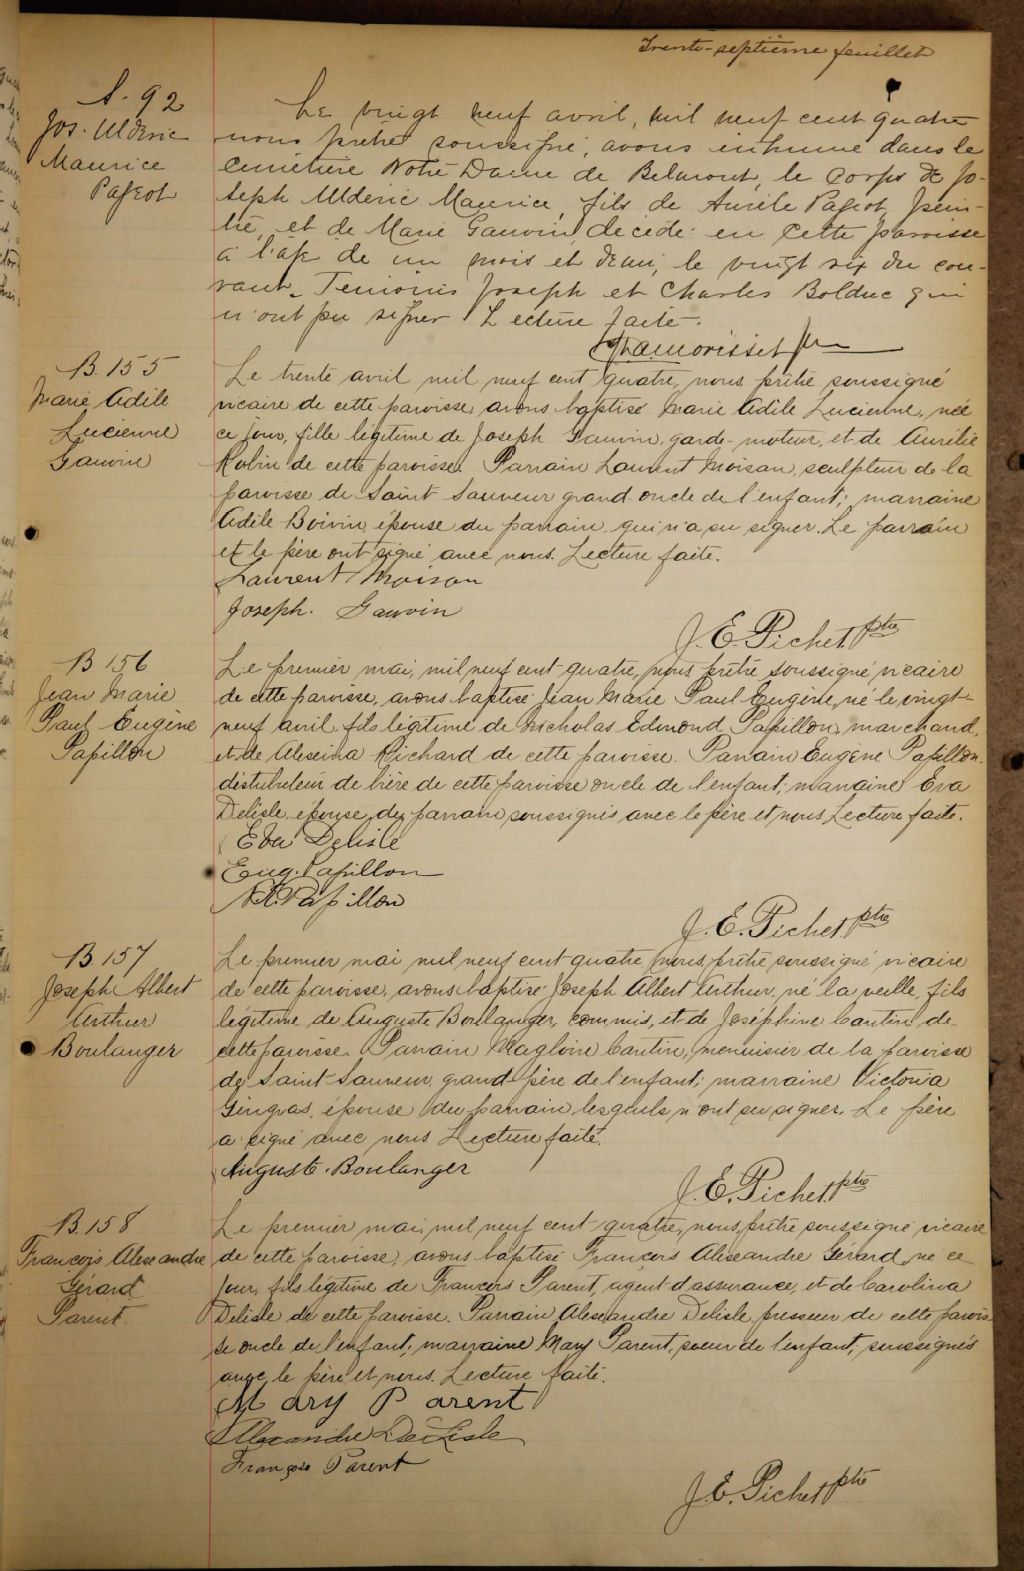 Trente-septième feuillet
S. 92
Jos. Ulderic
Maurice
Pageot
Le vingt neuf avril, mil neuf cent quatre
nous prêtre soussigné, avons inhumé dans le
cimetière Notre Dame de Belmont, le corps de Jo-
seph Ulderic Maurice, fils de Aurèle Pageot, pein-
tre, et de Marie Gauvin, décédé en cette paroisse
à l'age de un mois et demi, le vingt six du cou-
rant. Temoins Joseph et Charles Bolduc qui
n'ont pu signer Lecture faite.
B. 155
Marie Adile
Lucienne
Gauvin
Le trente avril mil neuf cent quatre, nous prêtre soussigné
vicaire de cette paroisse, avons baptisé Marie Adile Lucienne, née
ce jour, fille légitime de Joseph Gauvin, garde-moteur, et de Aurélie
Robin de cette paroisse. Parrain Laurent Moisan, sculpteur de la
paroisse de Saint Sauveur grand-oncle de l'enfant; marraine
Adile Boivin, épouse du parrain, qui n'a su signer. Le parrain
et le père ont signé avec nous. Lecture faite.
Laurent Moisan
Joseph. Gauvin
J. E. Pichet ptre
B 156
Jean Marie
Paul Eugène
Papillon
Le premier mai, mil neuf cent quatre, nous prêtre soussigné vicaire
de cette paroisse, avons baptisé Jean Marie Paul Eugène, né le vingt-
neuf avril, fils légitime de Nicholas Edmond Papillon, marchand,
et de Alexina Richard de cette paroisse. Parrain Eugène Papillon,
distributeur de bière de cette paroisse oncle de l'enfant; marraine Eva
Delisle, épouse du parrain soussignés avec le père et nous. Lecture faite.
Eva Delisle
Eug. Papillon
N.E. Papillon
J. E. Pichet ptre
B. 157
Joseph Albert
Arthur
Boulanger
Le premier mai mil neuf cent quatre, nous, prêtre soussigné vicaire
de cette paroisse, avons baptisé Joseph Albert Arthur, né la veille, fils
légitime de Auguste Boulanger, commis, et de Joséphine Cantin de
cette paroisse. Parrain Magloire Cantin, menuisier de la paroisse
de Saint-Sauveur, grand-père de l'enfant; marraine Victoria
Gingras, épouse du parrain lesquels n'ont su signer. Le père
a signé avec nous Lecture faite.
Auguste. Boulanger
J. E. Pichet ptre
B. 158
François Alexandre
Gérard
Parent
Le premier mai, mil neuf cent quatre, nous, prêtre soussigné vicaire
de cette paroisse, avons baptisé François Alexandre Gérard, né ce
jour, fils légitime de François Parent, agent d'assurance, et de Carolina
Delisle de cette paroisse. Parrain Alexandre Delisle, presseur de cette parois
se oncle de l'enfant; marraine Mary Parent, soeur de l'enfant; soussignés
avec le père et nous. Lecture faite.
Mary Parent
Alexandre DeLisle
François Parent
J. E. Pichet ptre